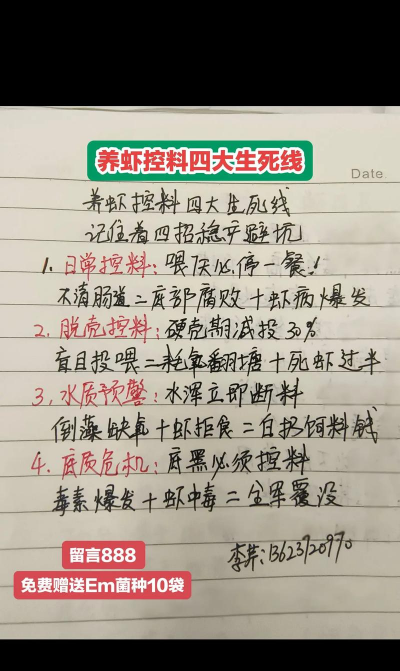 养虾控料四大生死线
Date.
养虾控料四大生死线
记住着四招稳产避坑
1. 日常控料:喂7天必停一餐!
不清肠道=底部腐败+虾病爆发
2. 脱壳控料:硬壳期减投30%
盲目投喂=耗氧翻塘+死虾过半
3, 水质预警:水浑立即断料
倒藻缺氧+虾拒食=白扔饲料钱
4. 底质危机:底黑必须控料
毒素爆发+虾中毒=全军覆没
留言888
免费赠送Em菌种10袋